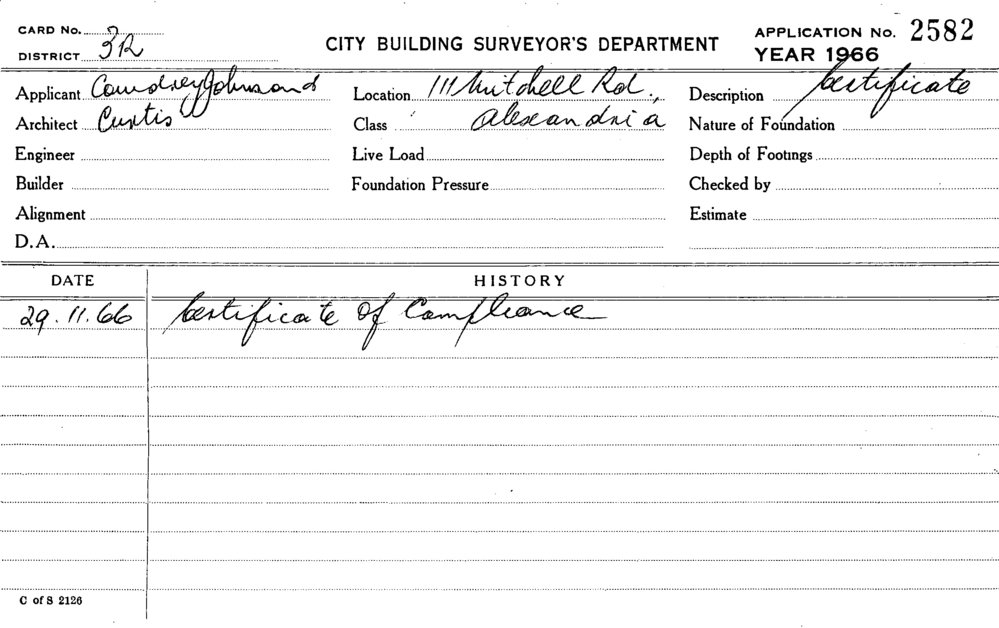 CARD No.
APPLICATION No. 2582
DISTRICT 3R
CITY BUILDING SURVEYOR'S DEPARTMENT
YEAR 1966
Applicant Cowdrey Johns and
Location 111 Mitchell Rd.,
Description Certificate
Architect Curtis
Class Alexandria
Nature of Foundation
Engineer
Live Load
Depth of Footings
Builder
Foundation Pressure
Checked by
Alignment
Estimate
D.A.
DATE
HISTORY
29.11.66 Certificate of Compliance
C of S 2126